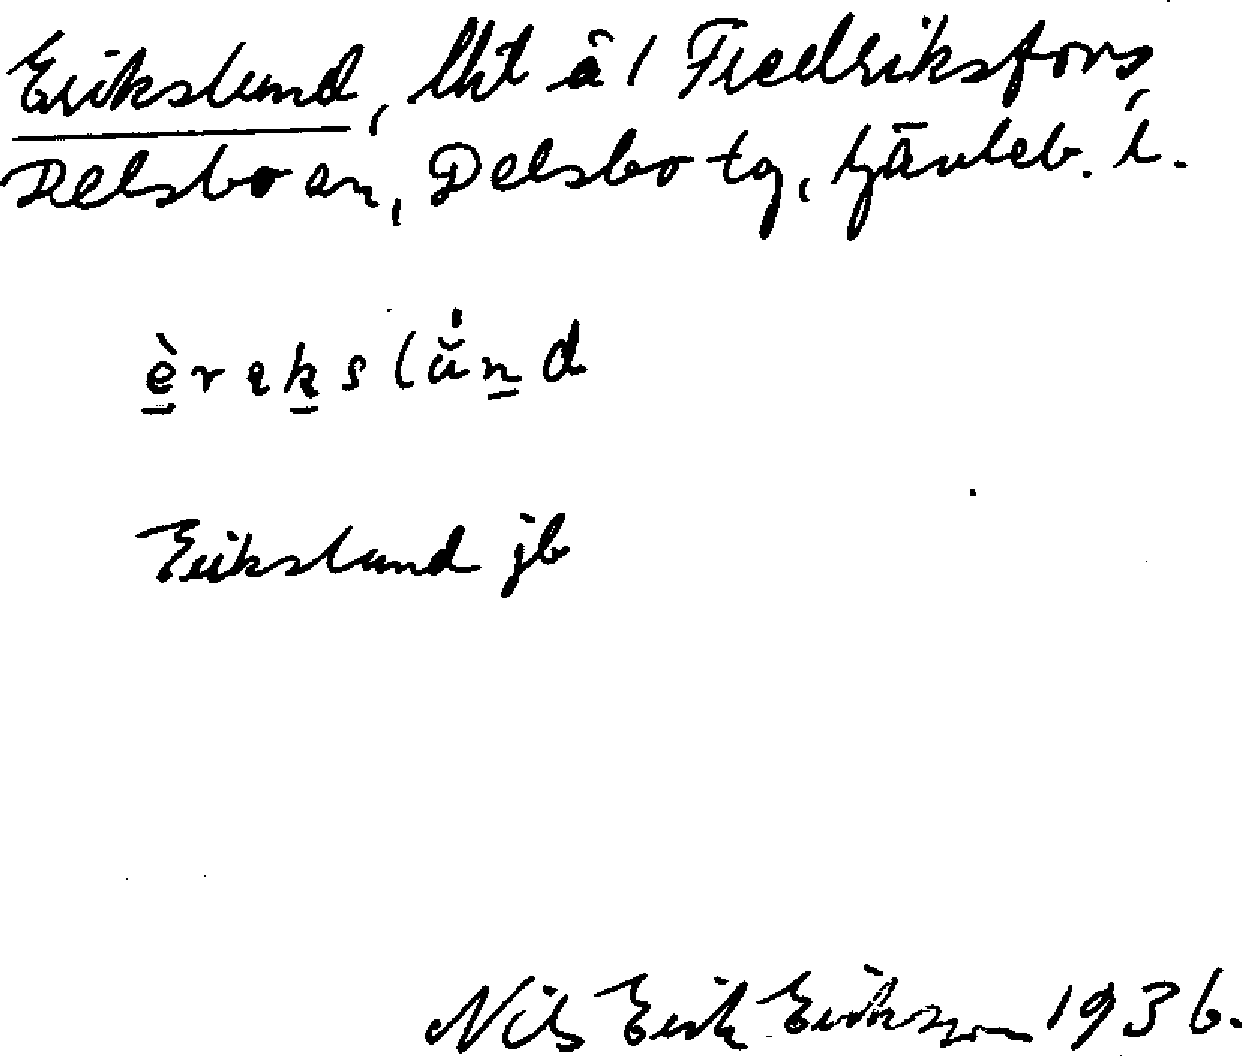 Erikslund, lht å 1 Fredriksfors,
Delsbo sn, Delsbo tg, Gävleb. l.
Erikslund jb
Nils Erik Eriksson 1936.